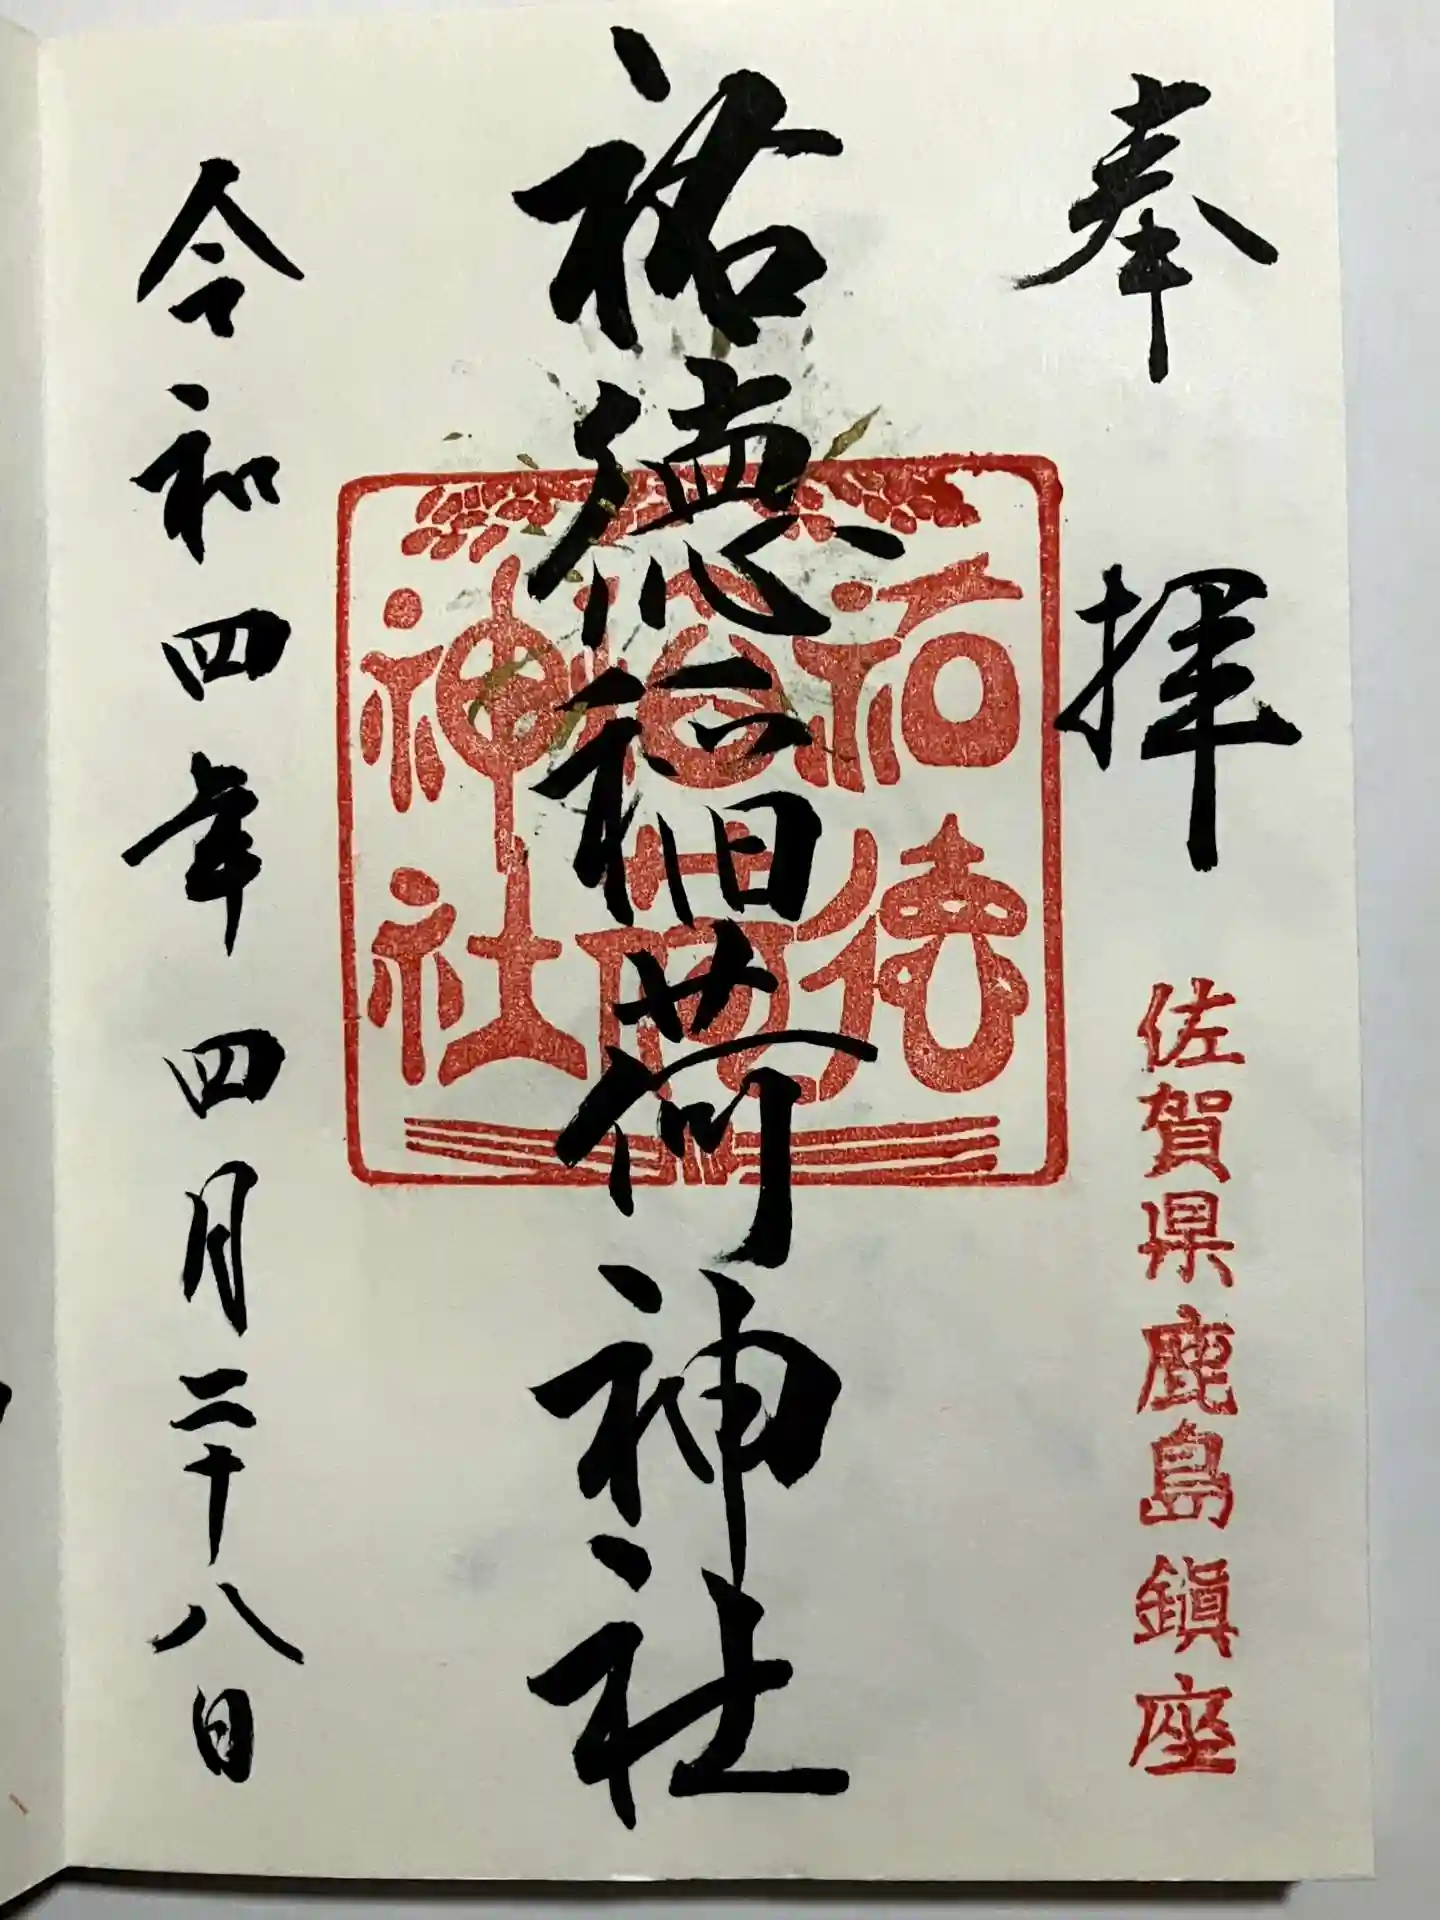 奉拝
佐賀県鹿島鎮座
祐徳稲荷神社
祐徳
稲荷
神社
令和四年四月二十八日